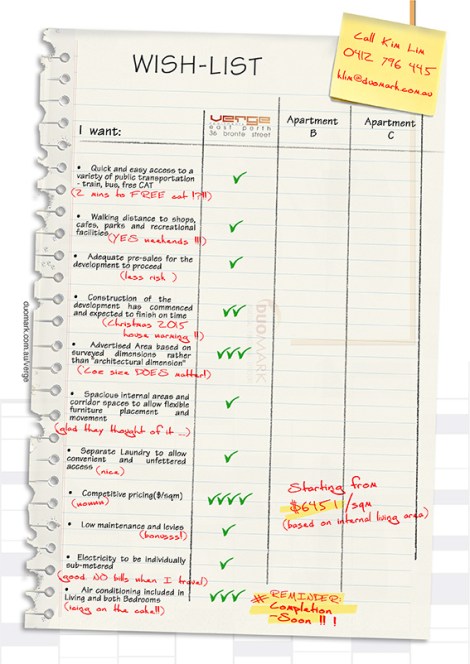 Call Kim Lim
0412 796 445
klim@duomark.com.au
WISH-LIST
I want:
verge
east perth
36 bronte street
Apartment
B
Apartment
C
• Quick and easy access to a
variety of public transportation
- train, bus, free CAT
(2 mins to FREE cat !?!!)
• Walking distance to shops,
cafes, parks and recreational
facilities
(YES weekends !!!)
• Adequate pre-sales for the
development to proceed
(less risk )
• Construction of the
development has commenced
and expected to finish on time
(Christmas 2015
house warming !!)
• Advertised Area based on
surveyed dimensions rather
than "architectural dimension"
(Coz size DOES matter!)
• Spacious internal areas and
corridor spaces to allow flexible
furniture placement and
movement
(glad they thought of it ...)
• Separate Laundry to allow
convenient and unfettered
access (nice)
• Competitive pricing($/sqm)
Starting from
$6451 /sqm
(based on internal living area)
• Low maintenance and levies
(bonusss!)
• Electricity to be individually
sub-metered
(good NO bills when I travel)
• Air conditioning included in
Living and both Bedrooms
(icing on the cake!!)
# REMINDER:
Completion
-Soon !! !
duomark.com.au/verge
DUOMARK